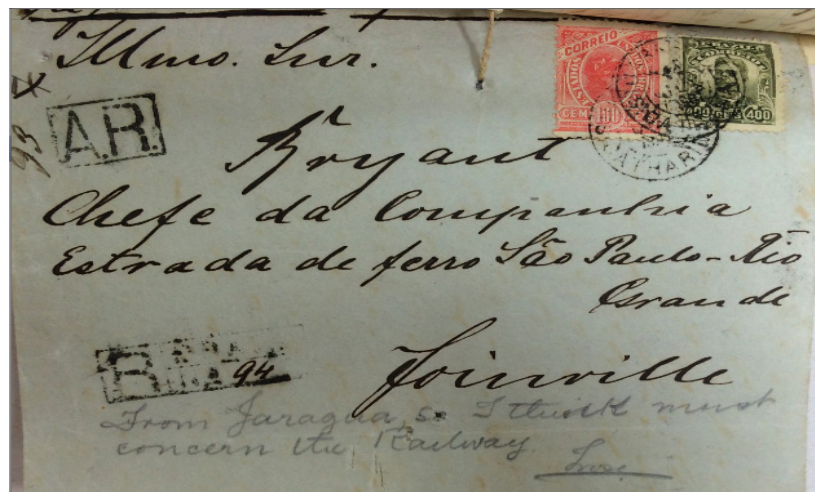 Illmo. Snr.
CORREIO
ESTADOS UNIDOS
CEM 100
400 400
A.R.
93
Bryant
Chefe da Companhia
Estrada de ferro São Paulo-Rio
Grande
R
94
Joinville
From Jaragua, so I think must
concern the Railway.